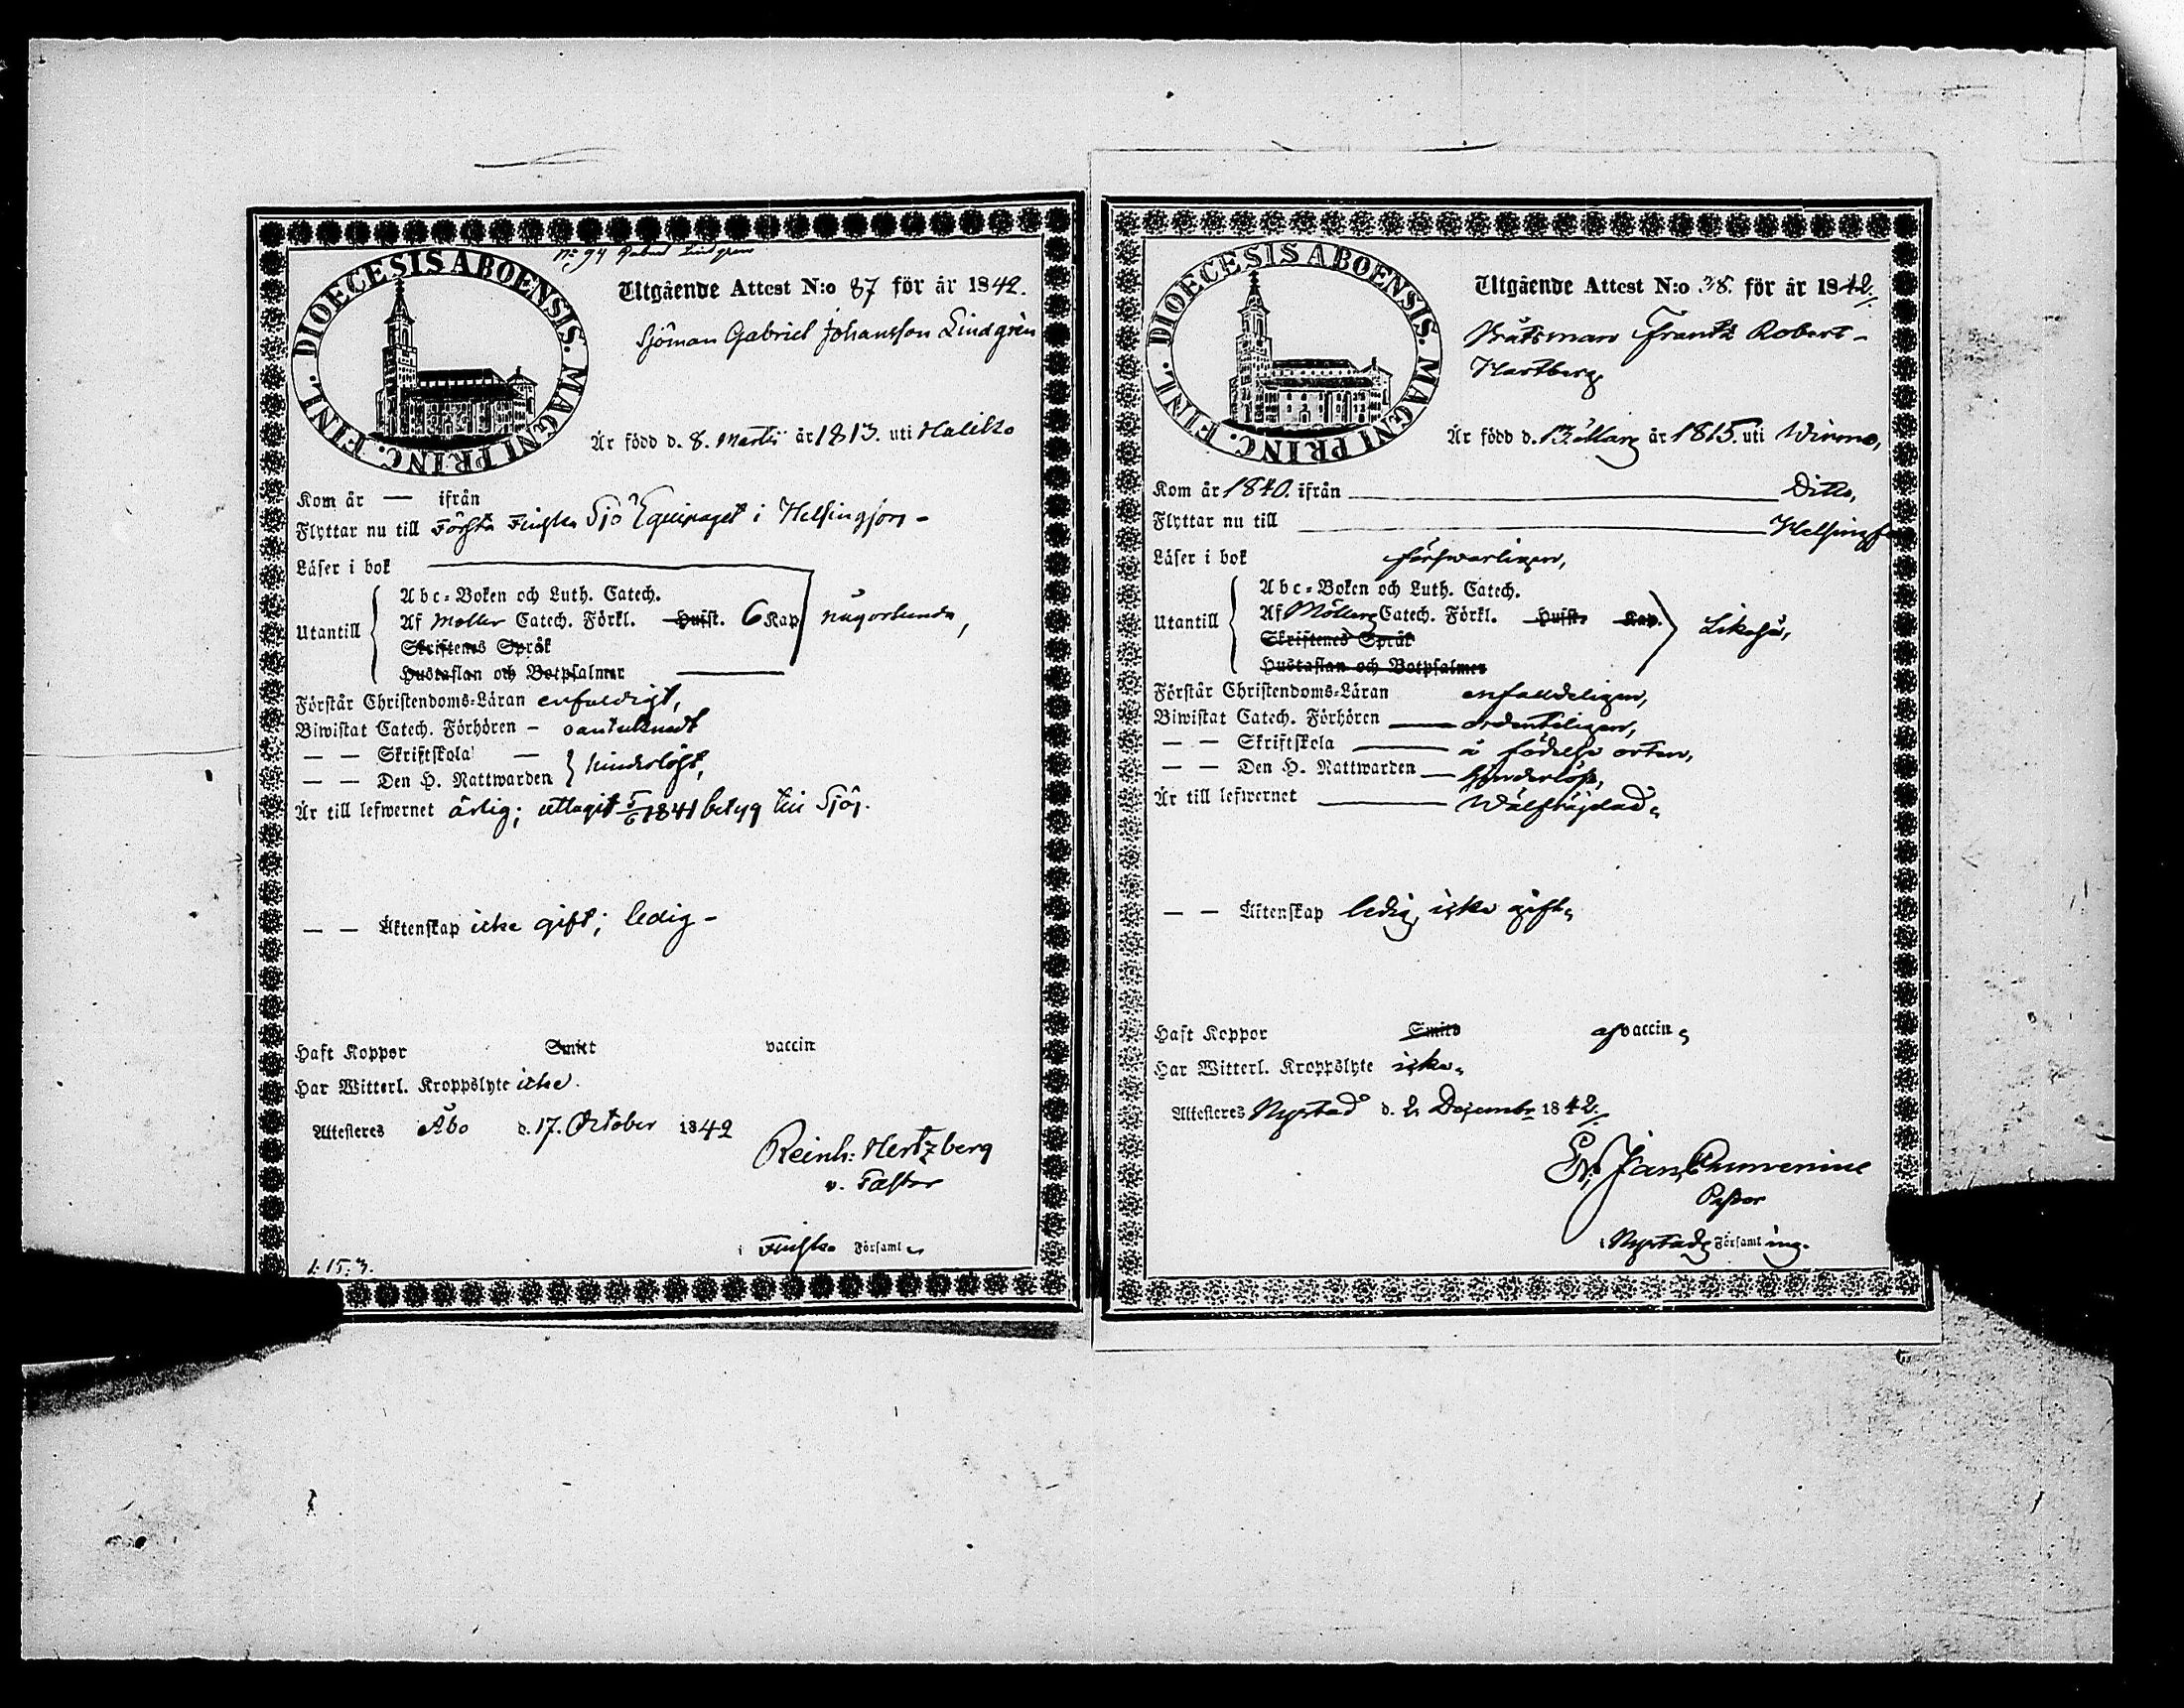 No 94 Gabriel Lindgren
DIOECESIS ABOENSIS. MAGNI PRINC. FINL.
Utgående Attest N:o 87 för år 1842.
Sjöman Gabriel Johansson Lindgrén
Är född d. 8. Martii år 1813. uti Haliko
Kom år — ifrån
Flyttar nu till Första Finska Sjö Equipaget i Helsingfors -
Läser i bok
Abc-Boken och Luth. Catech.
Utantill Af Moller Catech. Förkl. Husst. 6 Kap någorlunda,
Skriftenes Språk
Hustaflan och Botpsalmer
Förstår Christendoms-Läran enfaldigt,
Biwistat Catech. Förhören - oantecknadt
— — Skriftskola —
— — Den H. Nattwarden } hinderlöst,
Är till lefwernet ärlig; uttagit 5/6 1841 betyg till Sjös.
— — Äktenskap icke gift; ledig -
Haft Koppor Smitt vaccin
Har Witterl. Kroppslyte icke.
Attesteres Åbo d. 17. October 1842
Reinh: Hertzberg
v. Pastor
i Finska Församl
1. 15. 3.
DIOECESIS ABOENSIS. MAGNI PRINC. FINL.
Utgående Attest N:o 38. för år 1842.
Båtsman Frantz Robert -
Hartberg
Är född d. 13 Marz år 1815. uti Wirmo,
Kom år 1840. ifrån Ditto,
Flyttar nu till Helsingf
Läser i bok försvarligen,
Abc-Boken och Luth. Catech.
Utantill Af Möllers Catech. Förkl. Husst. Kap. Likaså,
Skriftenes Språk
Hustaflan och Botpsalmer
Förstår Christendoms-Läran enfaldeligen,
Biwistat Catech. Förhören — ordenteligen,
— — Skriftskola — å födelse orten,
— — Den H. Nattwarden — hinderlöst,
Är till lefwernet — Wälfräjdad.
— — Äktenskap ledig, icke gift.
Haft Koppor Smitt af vaccin
Har Witterl. Kroppslyte icke.
Attesteres Nystad d. 2 Dezembr 1842.
Pastor
i Nystads Församling.